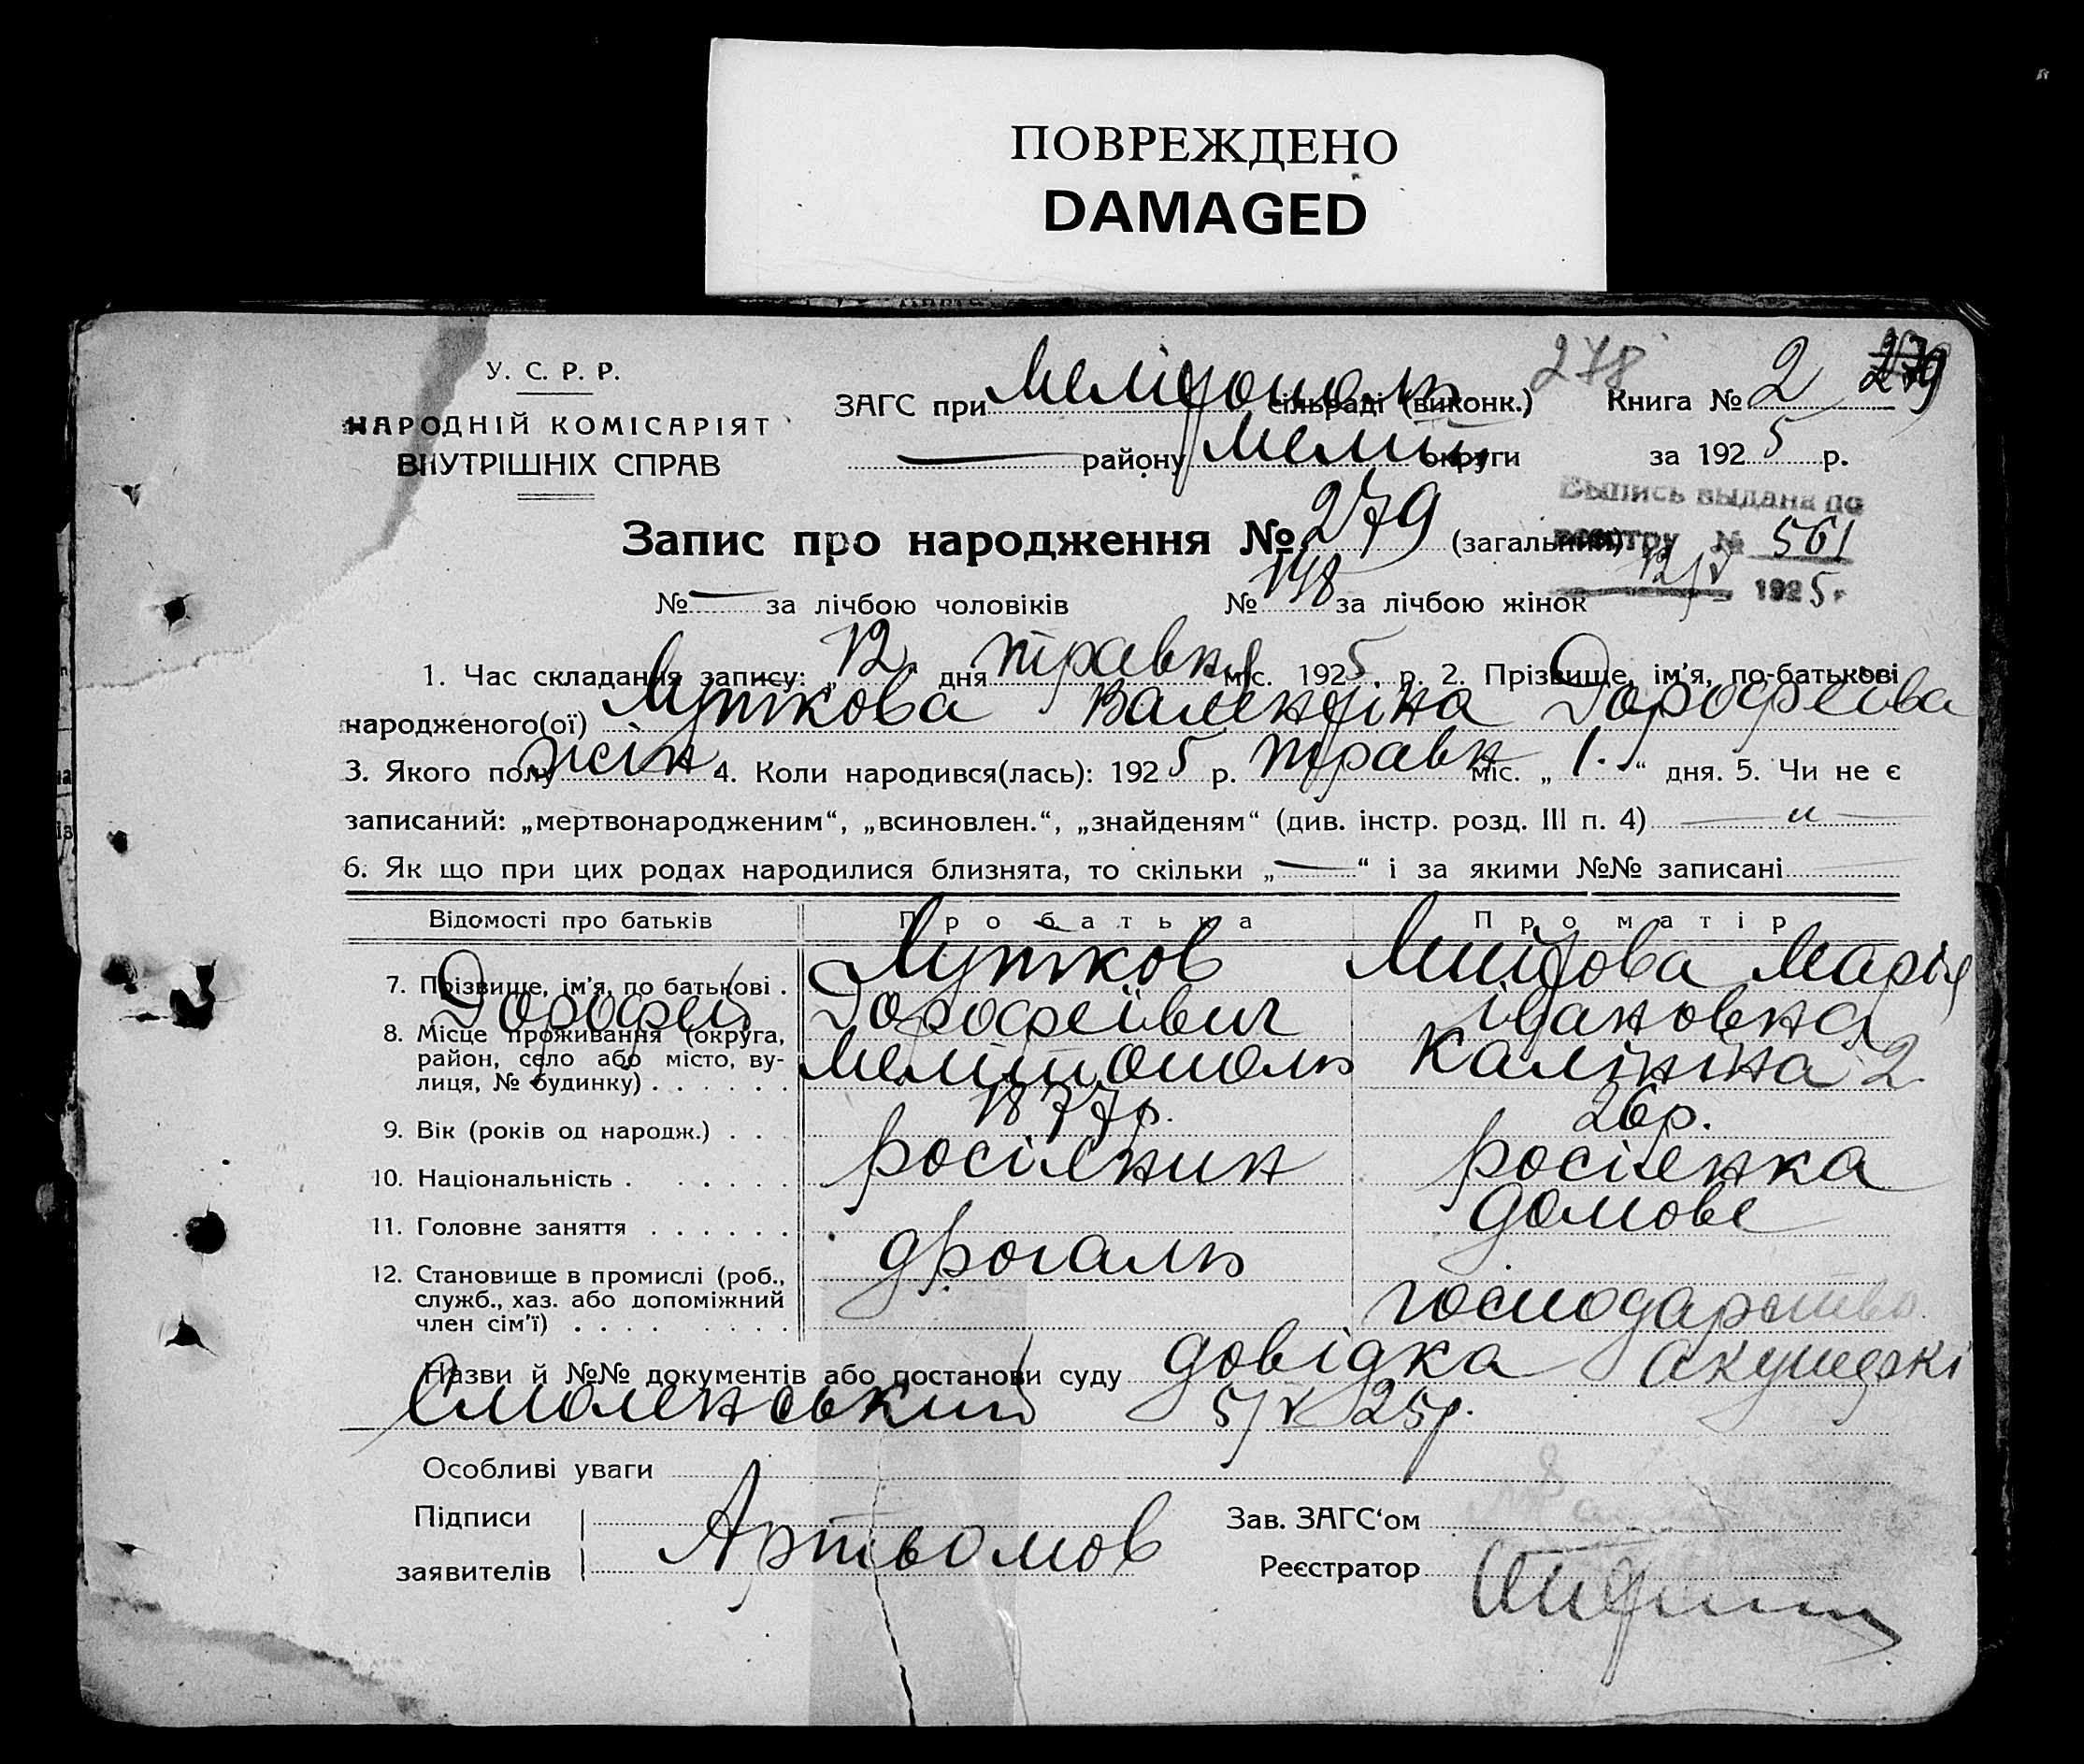 ПОВРЕЖДЕНО
DAMAGED
У. С. Р. Р.
НАРОДНІЙ КОМІСАРІЯТ
ВНУТРІШНІХ СПРАВ
278
ЗАГС при Мелітополь сільраді (виконк.) Книга № 2 279
— району Меліт. округи за 1925 р.
Выпись выдана по
реестру № 561
12/V 1925 г.
Запис про народження № 279 (загальний)
№ — за лічбою чоловіків № 148 за лічбою жінок
1. Час складання запису: „12“ дня травня міс. 1925 р. 2. Прізвище, ім’я, по-батькові
народженого(ої) Луткова Валентіна Дорофеівa
3. Якого полу жін 4. Коли народився(лась): 1925 р. травн міс. „1.“ дня. 5. Чи не є
записаний: „мертвонародженим“, „всиновлен.“, „знайденям“ (див. інстр. розд. III п. 4) — „ —
6. Як що при цих родах народилися близнята, то скільки „—“ і за якими №№ записані
Відомості про батьків Про батька Про матір
7. Прізвище, ім’я, по батькові . Лутков Марія
Дорофей Дорофеівич Івановна
8. Місце проживання (округа,
район, село або місто, ву-
лиця, № будинку) . . . . . . Мелітополь Калініна 2
9. Вік (років од народж.) . . . 1877р. 26р.
10. Національність . . . . . . росіянин росіянка
11. Головне заняття . . . . . . дрогаль домове
12. Становище в промислі (роб.,
служб., хаз. або допоміжний
член сім’ї) . . . . . . . . господарство
Назви й №№ документів або постанови суду довідка акушеркі
Смоленський 5/V 25р.
Особливі уваги
Підписи
заявителів Артьомов
Зав. ЗАГС‘ом
Реєстратор